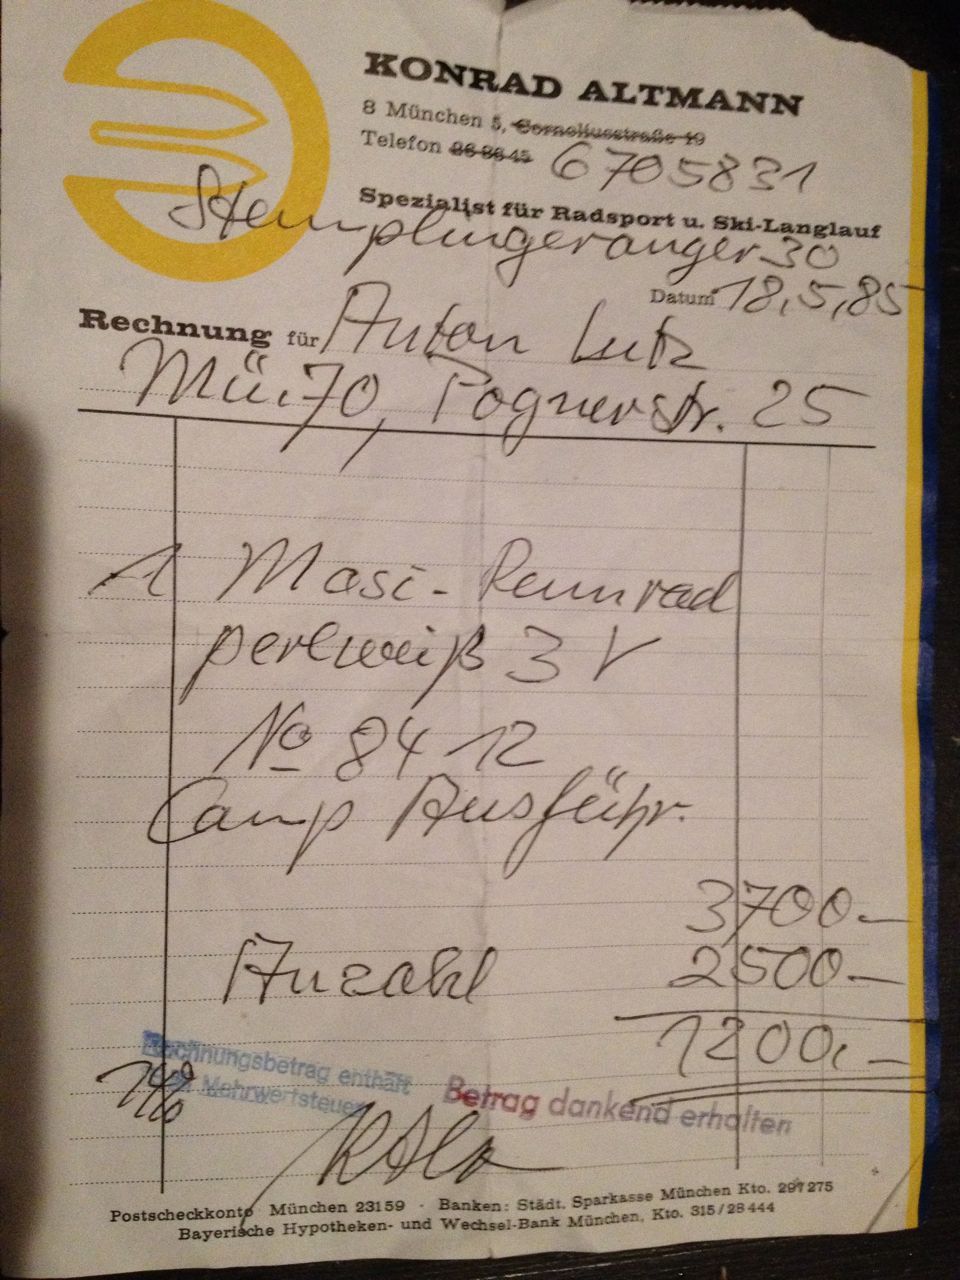 KONRAD ALTMANN
8 München 5, Corneliusstraße 19
Telefon 26 86 45 6705831
Spezialist für Radsport u. Ski-Langlauf
Stemplingeranger 30
Datum 18,5,85
Rechnung für Anton Lutz
Mü. 70, Fognerstr. 25
1 Masi-Rennrad
perlweiß 3 V
No 84 12
Camp Ausführ.
3700.—
Anzahl 2500—
1200,—
Rechnungsbetrag enthält
14% Mehrwertsteuer
Betrag dankend erhalten
Postscheckkonto München 23159 · Banken: Städt. Sparkasse München Kto. 297275
Bayerische Hypotheken- und Wechsel-Bank München, Kto. 315/28444